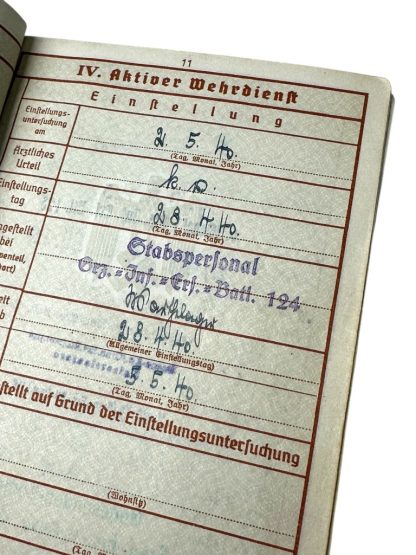 11
IV. Aktiver Wehrdienst
Einstellung
Einstellungs-
untersuchung
am
2. 5. 40.
(Tag, Monat, Jahr)
Ärztliches
Urteil
k. v.
Einstellungs-
tag
28. 4. 40.
(Tag, Monat, Jahr)
gestellt
bei
Stabspersonal
Grz.=Inf.=Ers.=Batt. 124
28. 4. 40.
(Allgemeiner Einstellungstag)
5. 5. 40.
(Tag, Monat, Jahr)
stellt auf Grund der Einstellungsuntersuchung
(Wohnsitz)